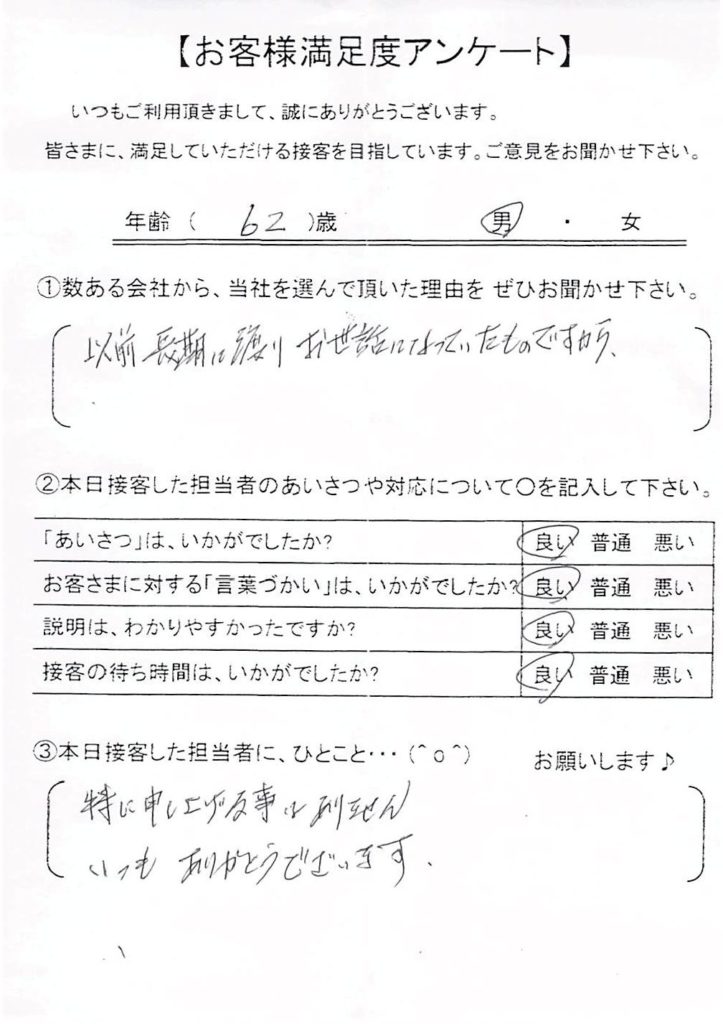 【お客様満足度アンケート】
いつもご利用頂きまして、誠にありがとうございます。
皆さまに、満足していただける接客を目指しています。ご意見をお聞かせ下さい。
年齢 ( 62 )歳 男 ・ 女
①数ある会社から、当社を選んで頂いた理由を ぜひお聞かせ下さい。
以前 長期に渡り お世話になっていたものですから、
②本日接客した担当者のあいさつや対応について〇を記入して下さい。
「あいさつ」は、いかがでしたか? 良い 普通 悪い
お客さまに対する「言葉づかい」は、いかがでしたか? 良い 普通 悪い
説明は、わかりやすかったですか? 良い 普通 悪い
接客の待ち時間は、いかがでしたか? 良い 普通 悪い
③本日接客した担当者に、ひとこと・・・(^o^) お願いします♪
特に申し上げる事はありません
いつも ありがとうございます.